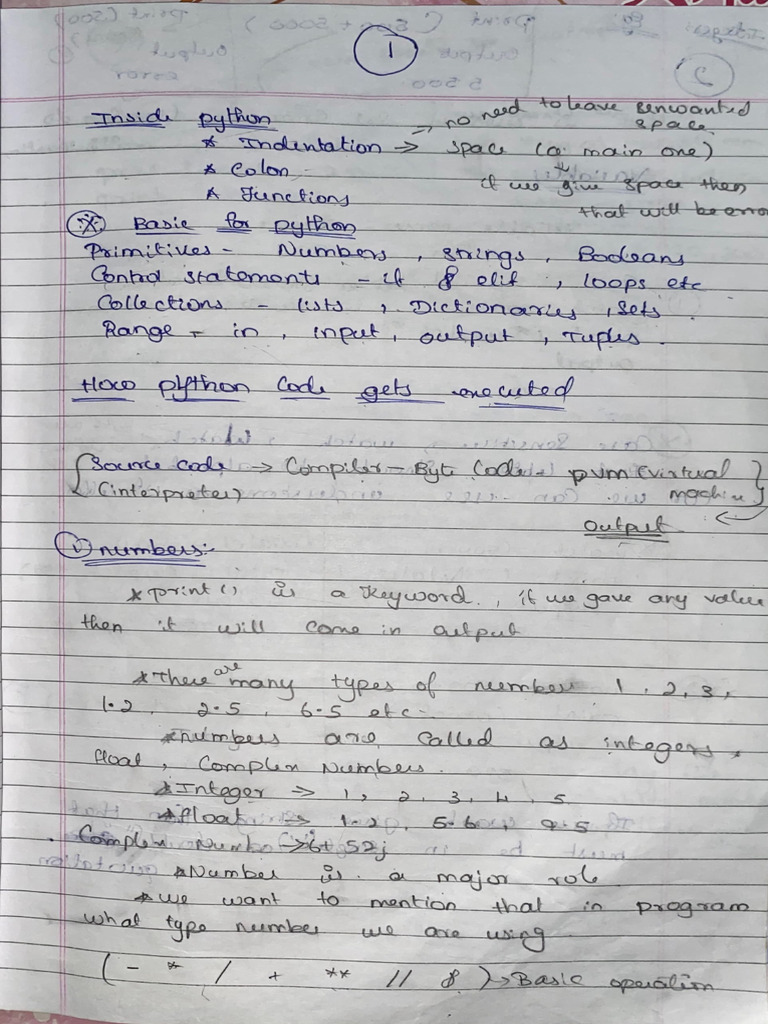 1
Inside python
=> no need to leave unwanted
space
* Indentation => space (a main one)
* Colon
if we give space then
* Functions
that will be erro
Basic for python
Primitives - Numbers, strings, Booleans
Control statements - if & elif, loops etc
Collections - lists, Dictionaries, Sets
Range - in, input, output, Tuples.
How python Code gets executed
Source code -> Compiler - Byte Code - pvm (virtual
(interpreter) machine)
output
numbers:-
* print() is a keyword, if we gave any value
then it will come in output
* There are many types of number 1, 2, 3,
1.2, 2.5, 6.5 etc-
* numbers are called as integers,
float, Complex Numbers.
* Integer => 1, 2, 3, 4, 5
* float => 1.2, 5.6, 9.5
Complex Number -> 6+52j
* Number is a major role
* we want to mention that in program
what type number we are using
(- * / + ** // &) -> Basic operation